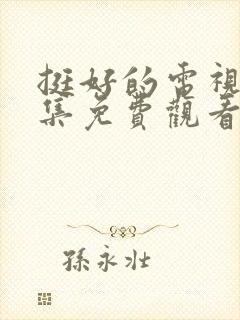 挺好的電視
集免費觀看
孫永壯